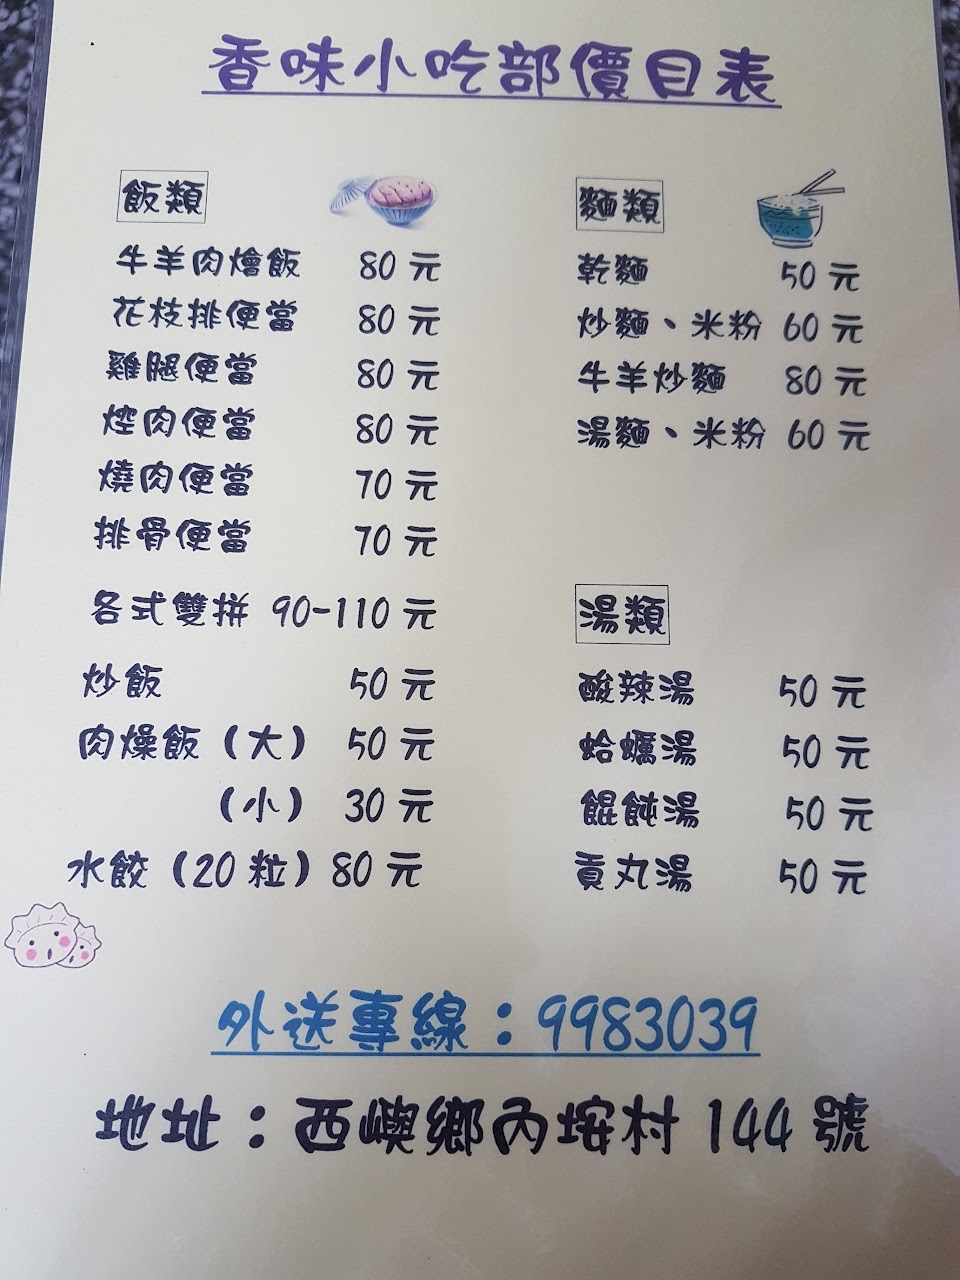 香味小吃部價目表
飯類
牛羊肉燴飯 80 元
花枝排便當 80 元
雞腿便當 80 元
焢肉便當 80 元
燒肉便當 70 元
排骨便當 70 元
各式雙拼 90-110 元
炒飯 50 元
肉燥飯（大） 50 元
（小） 30 元
水餃（20 粒）80 元
麵類
乾麵 50 元
炒麵、米粉 60 元
牛羊炒麵 80 元
湯麵、米粉 60 元
湯類
酸辣湯 50 元
蛤蠣湯 50 元
餛飩湯 50 元
貢丸湯 50 元
外送專線：9983039
地址：西嶼鄉內垵村 144 號